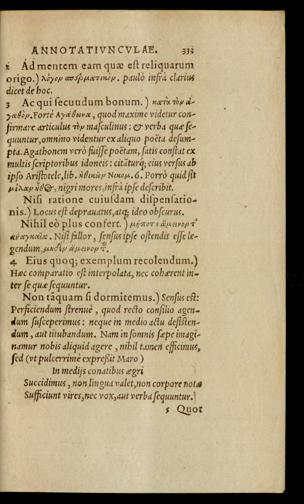 ANNOTATIVNCVLAE. 333
2 Ad mentem eam quæ est reliquarum
origo.) λόγον σπερματικόν. paulò infrà clarius
dicet de hoc.
3 Ac qui secuudum bonum.) κατὰ τὸν ἀ-
γαθόν. Fortè Αγάθωνα, quod maximè videtur con-
firmare articulus τὸν masculinus: & verba quæ se-
quuntur, omnino videntur ex aliquo poëta desum-
pta. Agathonem verò fuisse poëtam, satis constat ex
multis scriptoribus idoneis: citáturq; eius versus ab
ipso Aristotele, lib. ἠθικῶν Νικομ. 6. Porrò quid sit
μέλαν ἦθος. nigri mores, infrà ipse describit.
Nisi ratione cuiusdam dispensatio-
nis.) Locus est deprauatus, atq; ideo obscurus.
Nihil eò plus confert.)
Nisi fallor, sensus ipse ostendit esse le-
gendum,
4 Eius quoq; exemplum recolendum.)
Hæc comparatio est interpolata, nec cohærent in-
ter se quæ sequuntur.
Non tãquam si dormitemus.) Sensus est:
Perficiendum strenuè, quod recto consilio agen-
dum susceperimus: neque in medio actu desisten-
dum, aut titubandum. Nam in somnis sæpe imagi-
namur nobis aliquid agere, nihil tamen efficimus,
sed (vt pulcerrimè expressit Maro)
In medijs conatibus ægri
Succidimus, non lingua valet, non corpore notæ
Sufficiunt vires, nec vox, aut verba sequuntur.
5 Quot